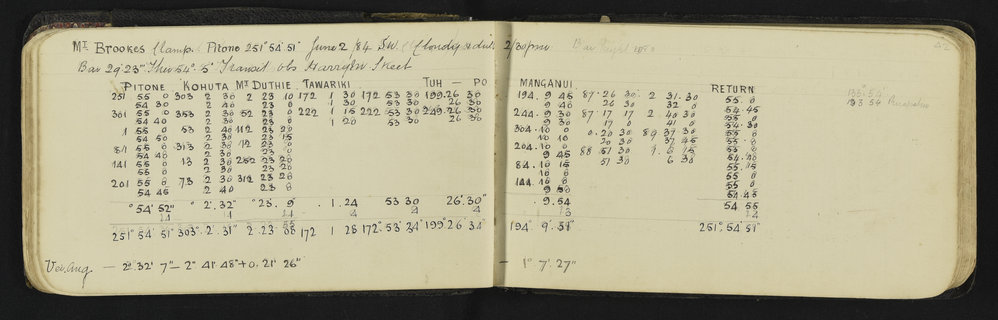 Mt Brookes (Lamp. Pitone 251° 54' 51" June 2 /84 S.W. Cloudy & dul. 2/30 pm 42
Bar 29.23" Ther 54°.5 Transit obs Harry Skeet
PITONE KOHUTA Mt DUTHIE TAWARIKI TUH — PO MANGANUI RETURN
251 55 0 303 2 30 2 23 10 172 1 30 172 53 30 199.26 30 194. 9 45 87.26 30 2 31.30 55. 0
54 30 2 40 23 0 1 30 53 30 26 30 9 40 26 30 32 0 54.45
301 55 0 353 2 30 52 23 0 222 1 15 222 53 30 249.26 30 244. 9 30 87 17 17 2 40 30 55 0
54 40 2 30 23 0 1 20 53 30 26 30 9 30 17 0 41 0 54.30
1 55 0 53 2 40 112 23 20 304.10 0 0.20 30 89 37 30 55 0
54 50 2 30 23 15 10 10 20 30 37 45 55. 0
81 55 0 313 2 30 112 23 0 204.10 0 88 51 30 9. 6 15 55 0
54 40 2 30 23 0 9 45 51 30 6 30 54.40
141 55 0 13 2 30 252 23 20 84.10 15 55 0
55 0 2 30 23 20 10 0 55. 0
201 55 0 73 2 30 312 23 20 144.10 0 55 0
54 45 2 40 23 0 9 50 54.45
° 54' 52" ° 2'. 32" ° 23. 9 . 1. 24 53 30 26'. 30" ° 9.54 54. 55
251° 54' 51" 303° 2'. 31" 2. 23. 08 172 1 28 172° 53' 34" 199° 26' 34" 194° 9'. 51" 251° 54' 51"
Ver. Ang. — 2° 32' 7" — 2° 41' 48" + 0. 21' 26" — 1° 7'. 27"